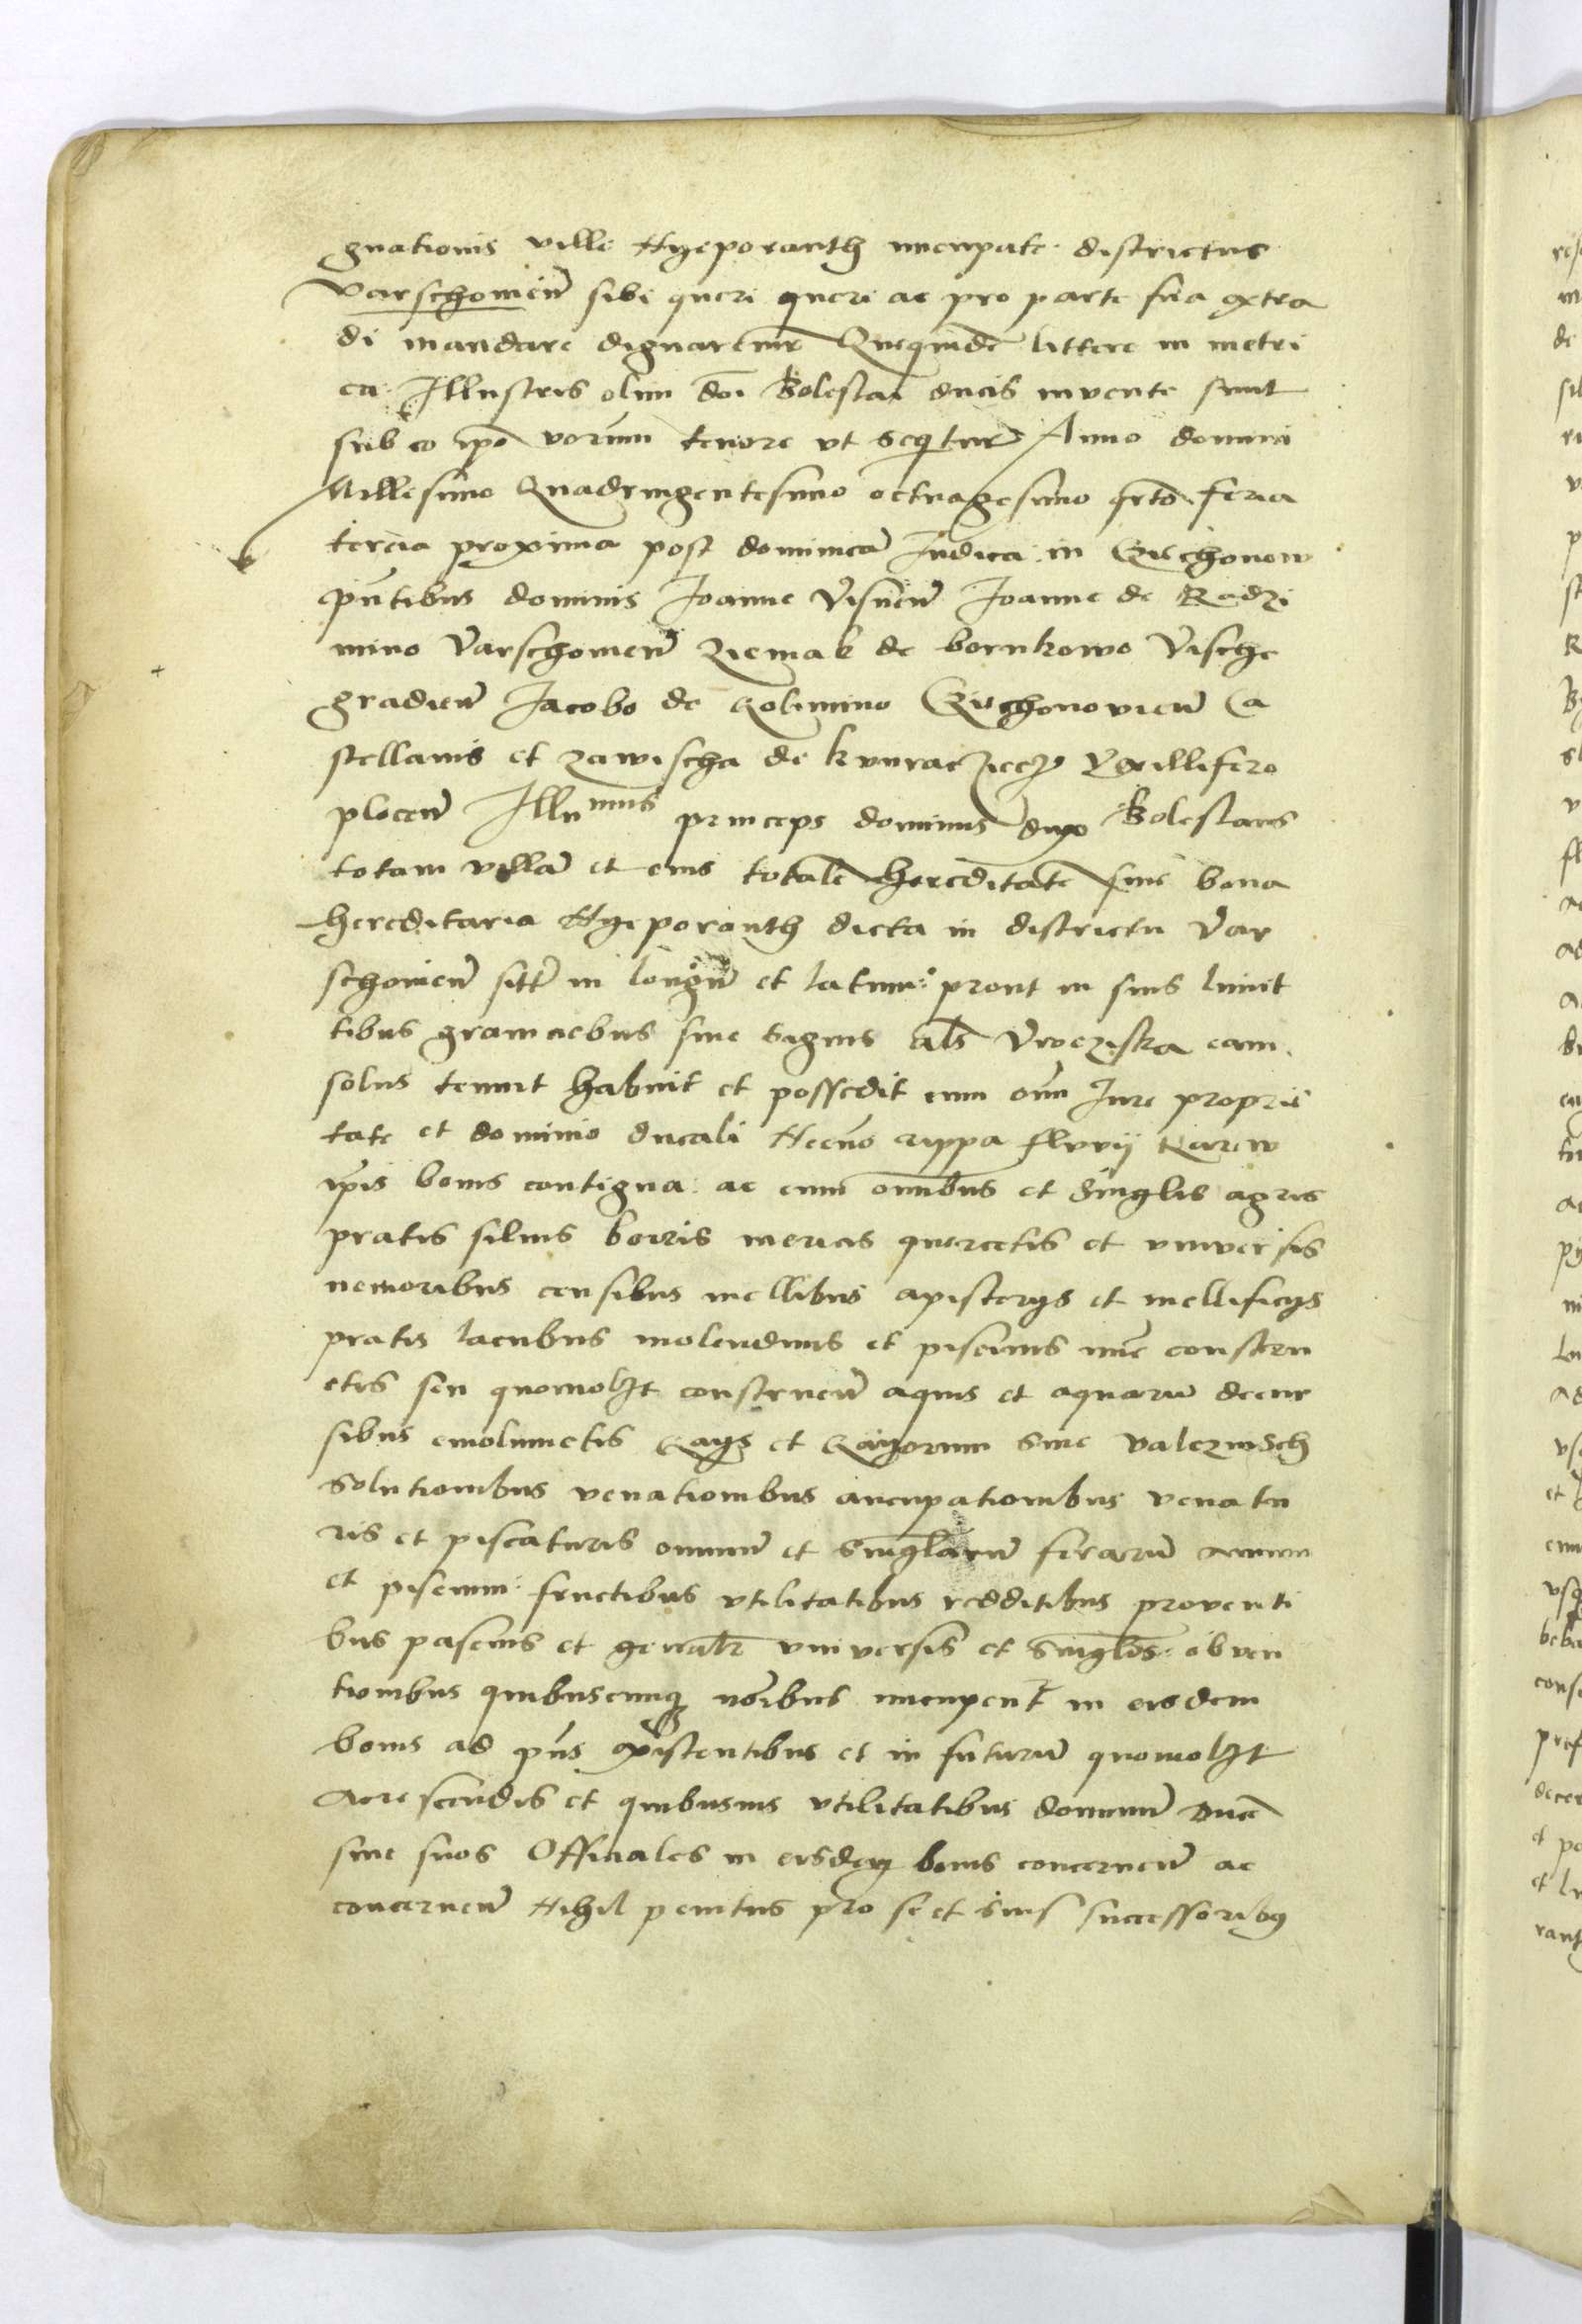 gnationis ville Nyeporanth nuncupate districtus
Varschouien̄ sibi queri queri ac pro parte sua extra
di mandare dignaremur Quequidē littere in metri
ca Illustris olim dn̄i Bolestai ducis invente sunt
sub eo ip̄o vorum tenore ut seq̄tur Anno domini
Millesimo Quadringentesimo octuagesimo qrto feria
tercia proxima post dominicā Iudica in Czechonow
pn̄tibus dominis Joanne Visnen̄ Joanne de Radzi
mino Varschouien̄ Ziemak de bornkowo Vische
gradien̄ Jacobo de Golimino Czechonovien̄ Ca
stellanis et zawischa de kunraczicze Vexillifero
plocen̄ Illumus princeps dominus dux Bolestaus
totam villā et eius totalē hereditatē sive bona
hereditaria Nyeporanth dicta in districtu Var
schouien̄ sitt in longū et latum prout in suis limit
tibus graniciebus sive signis als Vroczyska eam
solus tenuit habuit et possedit cum om̄i Jure proprie
tate et dominio ducali Necnō rippa fluvij Narew
ip̄is bonis contigua ac cum omnibus et singlis agris
pratis silvis borris mericis quercetis et universis
nemoribus censibus mellibus apisterys et mellificys
pratis lacubus molendinis et piscinis nunc constru
ctis seu quomolꝫt construen̄ aquis et aquarū decur
sibus emolumētis Gays et Gayorum sive valeznisch
solutionibus venationibus aucupationibus venatu
ris et piscaturis omniū et singlarū ferarū avium
et piscium fructibus utilitatibus redditibus proventi
bus pascuis et gen̄ralr̄ universis et singlis obven
tionibus quibuscumqꝫ no͞ibus nuncupent̄ in eisdem
bonis ad pn̄s existentibus et in futurū quomolꝫt
accrescendis et quibusvis utilitatibus dominū ducē
sive suos Officiales in eisdem bonis concernen̄ ac
concernen̄ Nihil penitus pro se et suis successoribꝫ